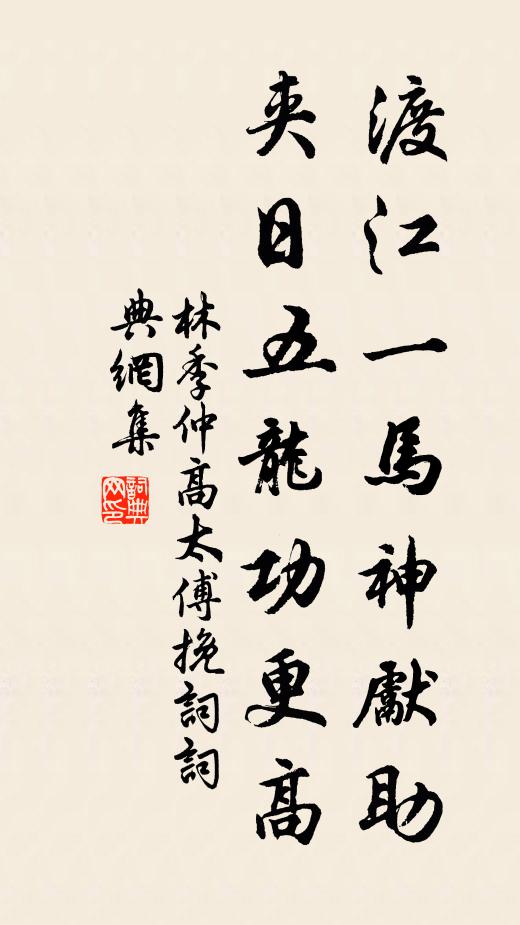 渡江一馬神獻助
夾日五龍功更高
林季仲高太傅挽詞詞
典網集
詞典
网印